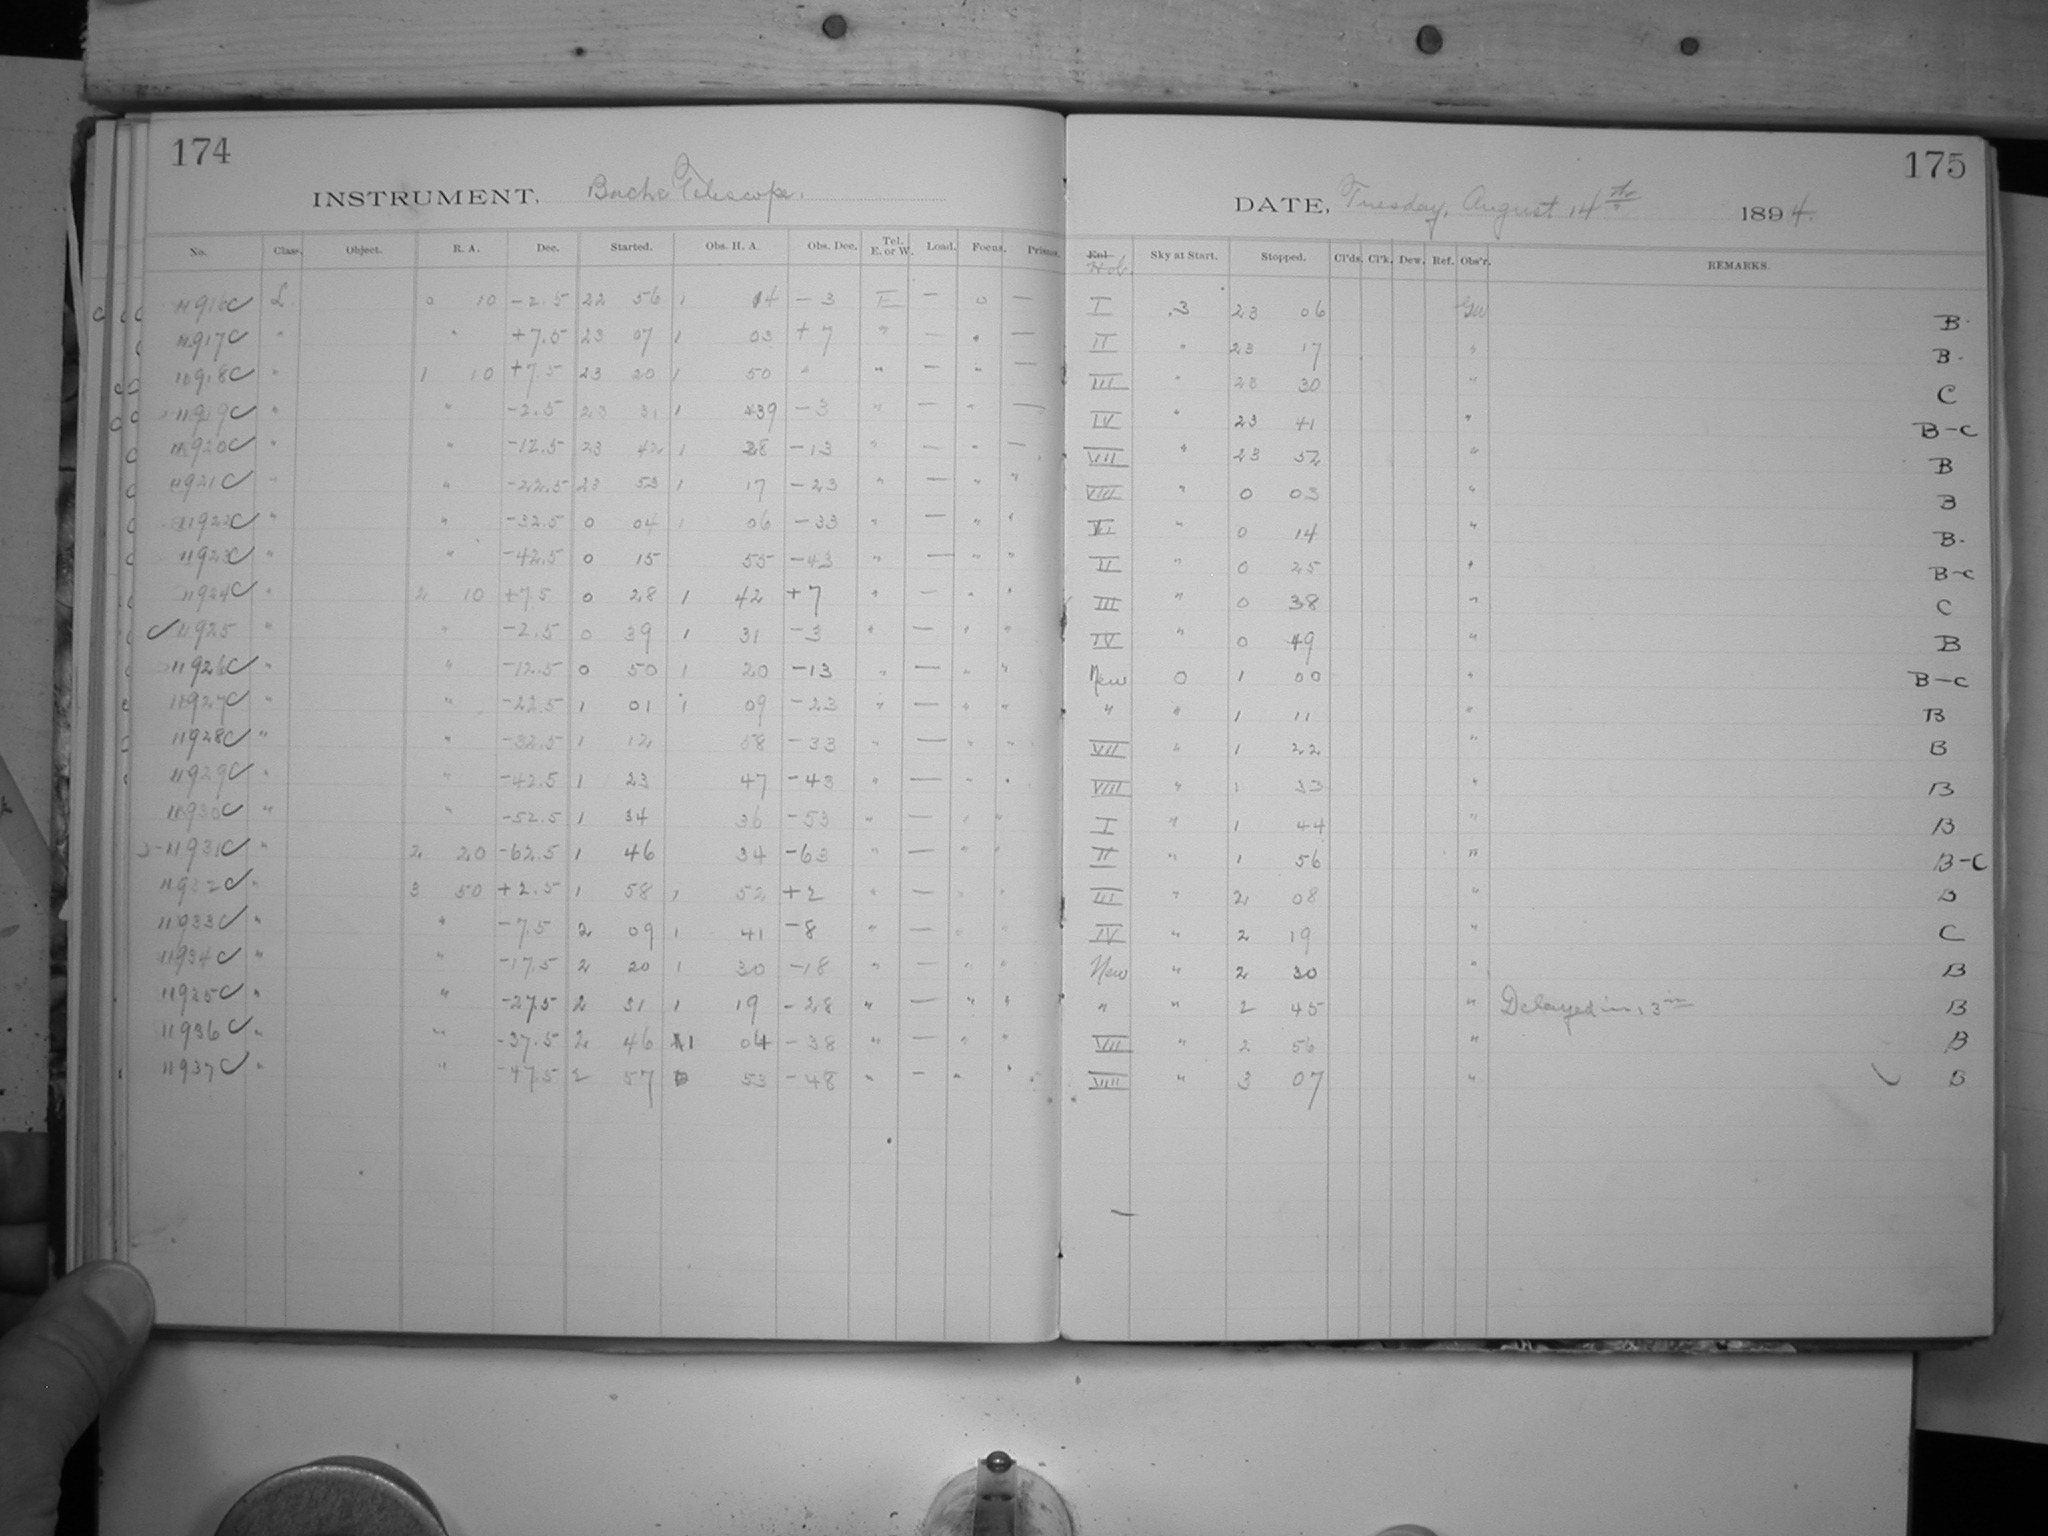 174
INSTRUMENT, Bache Telescope.
No. Class. Object. R. A. Dec. Started. Obs. H. A. Obs. Dec. Tel. E. or W. Load. Focus. Prisms.
11916 C L. 0 10 -2.5 22 56 1 14 -3 E — 0 —
11917 C " " +7.5 23 07 1 03 +7 " — " —
11918 C " 1 10 +7.5 23 20 1 50 " " — " —
11919 C " " -2.5 23 31 1 39 -3 " — " —
11920 C " " -12.5 23 42 1 28 -13 " — " —
11921 C " " -22.5 23 53 1 17 -23 " — " "
11922 C " " -32.5 0 04 1 06 -33 " — " "
11923 C " " -42.5 0 15 55 -43 " — " "
11924 C " 2 10 +7.5 0 28 1 42 +7 " — " "
C 11925 " " -2.5 0 39 1 31 -3 " — " "
11926 C " " -12.5 0 50 1 20 -13 " — " "
11927 C " " -22.5 1 01 1 09 -23 " — " "
11928 C " " -32.5 1 12 58 -33 " — " "
11929 C " " -42.5 1 23 47 -43 " — " "
11930 C " " -52.5 1 34 36 -53 " — " "
11931 C " 2 20 -62.5 1 46 34 -63 " — " "
11932 C " 3 50 +2.5 1 58 1 52 +2 " — " "
11933 C " " -7.5 2 09 1 41 -8 " — " "
11934 C " " -17.5 2 20 1 30 -18 " — " "
11935 C " " -27.5 2 31 1 19 -28 " — " "
11936 C " " -37.5 2 46 1 04 -38 " — " "
11937 C " " -47.5 2 57 53 -48 " — " "
175
DATE, Tuesday, August 14th 1894.
Hol. Sky at Start. Stopped. Cl'ds. Cl'k. Dew. Ref. Obs'r. REMARKS.
I .3 23 06 Gw B
II " 23 17 " B
III " 23 30 " C
IV " 23 41 " B-C
VII " 23 52 " B
VIII " 0 03 " B
" 0 14 " B
II " 0 25 " B-C
III " 0 38 " C
IV " 0 49 " B
New 0 1 00 " B-C
" " 1 11 " B
VII " 1 22 " B
VIII " 1 33 " B
I " 1 44 " B
II " 1 56 " B-C
III " 2 08 " B
IV " 2 19 " C
New " 2 30 " B
" " 2 45 " Delayed B
VII " 2 56 " B
VIII " 3 07 " B